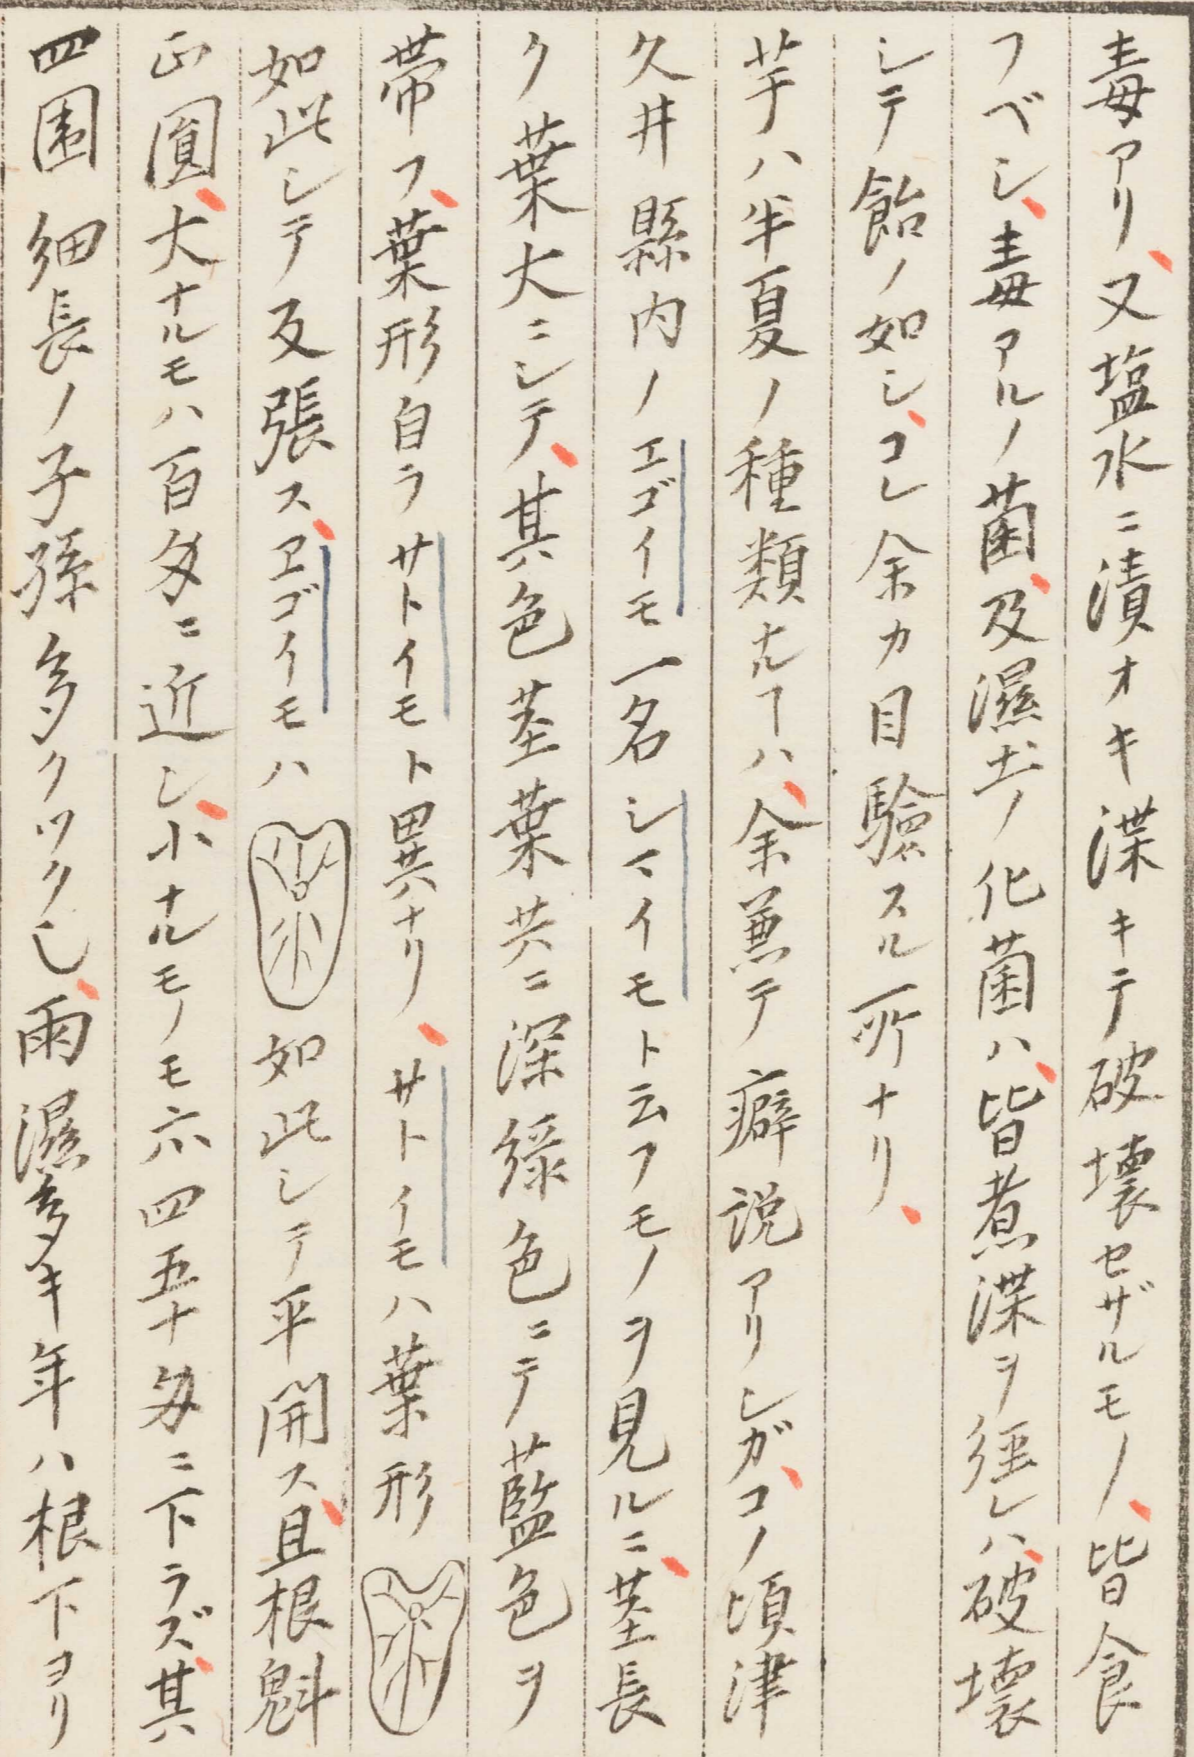 毒アリ、又塩水ニ漬オキ渫キテ破壊セザルモノ、皆食
フベシ、毒アルノ菌、及濕土ノ化菌ハ、皆煮渫ヲ經レハ、破壊
シテ飴ノ如シ、コレ余カ目驗スル所ナリ、
芋ハ半夏ノ種類ナルヿハ、余兼テ癖説アリシガ、コノ頃津
久井縣内ノエゴイモ一名シマイモト云フモノヲ見ルニ、茎長
ク葉大ニシテ、其色茎葉共ニ深緑色ニテ藍色ヲ
帯フ、葉形自ラサトイモト異ナリ、サトイモハ葉形
如此シテ反張ス、エゴイモハ如此シテ平開ス、且根魁
正圓、大ナルモハ百匁ニ近シ、小ナルモノモ亦四五十匁ニ下ラズ、其
四囲細長ノ子孫多クツク也、雨濕多キ年ハ根下ヨリ